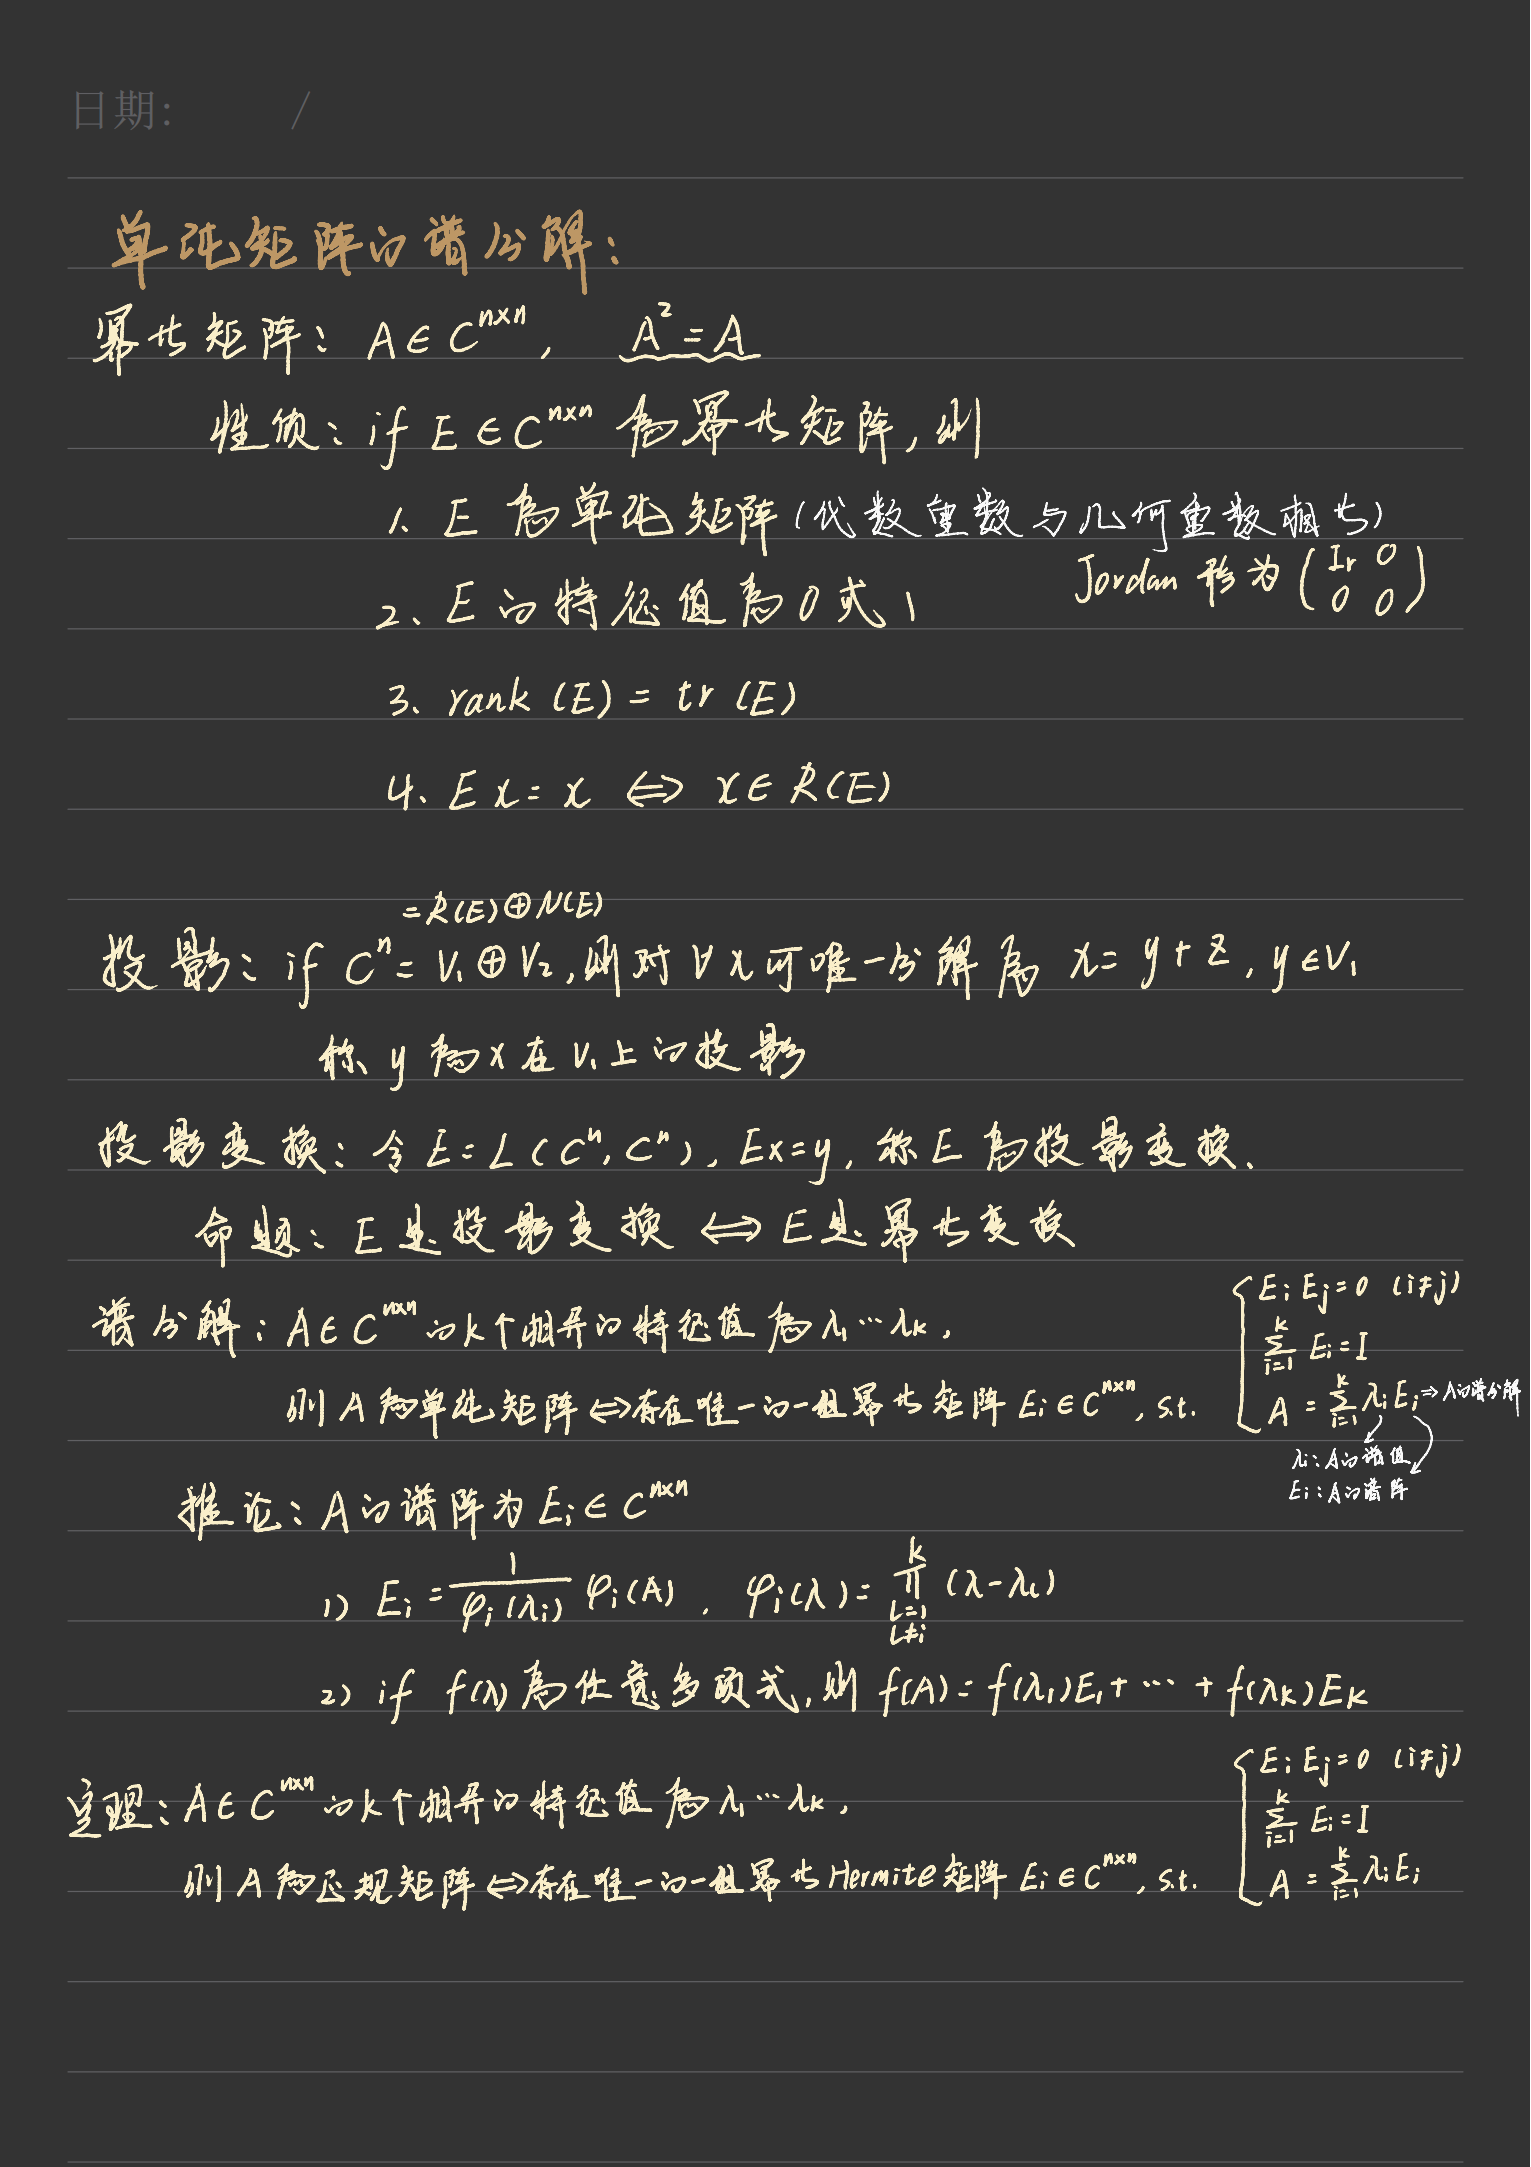 日期: /
单纯矩阵的谱分解:
幂等矩阵: A∈Cⁿˣⁿ, A²=A
性质: if E∈Cⁿˣⁿ 为幂等矩阵, 则
1. E 为单纯矩阵(代数重数与几何重数相等)
Jordan 形为 (Ir 0
0 0)
2、E的特征值为0或1
3、rank (E) = tr (E)
4、Ex = x ⇔ x∈R(E)
=R(E)⊕N(E)
投影: if Cⁿ = V₁⊕V₂, 则对∀x可唯一分解为 x = y + z, y∈V₁
称 y 为x在V₁上的投影
投影变换: 令E=L(Cⁿ, Cⁿ), Ex=y, 称E为投影变换.
命题: E是投影变换 ⇔ E是幂等变换
谱分解: A∈Cⁿˣⁿ的k个相异的特征值为λ₁…λₖ,
则A为单纯矩阵⇔存在唯一的一组幂等矩阵 Eᵢ∈Cⁿˣⁿ, s.t.
{ EᵢEⱼ=0 (i≠j)
∑ᵢ₌₁ᵏ Eᵢ=I
A = ∑ᵢ₌₁ᵏ λᵢEᵢ ⇒ A的谱分解
λᵢ: A的谱值
Eᵢ: A的谱阵
推论: A的谱阵为Eᵢ∈Cⁿˣⁿ
1) Eᵢ = 1/φᵢ(λᵢ) φᵢ(A), φᵢ(λ) = ∏ₗ₌₁,ₗ≠ᵢᵏ (λ-λₗ)
2) if f(λ)为任意多项式, 则 f(A) = f(λ₁)E₁+…+f(λₖ)Eₖ
定理: A∈Cⁿˣⁿ的k个相异的特征值为λ₁…λₖ,
则A为正规矩阵⇔存在唯一的一组幂等Hermite矩阵 Eᵢ∈Cⁿˣⁿ, s.t.
{ EᵢEⱼ=0 (i≠j)
∑ᵢ₌₁ᵏ Eᵢ=I
A = ∑ᵢ₌₁ᵏ λᵢEᵢ